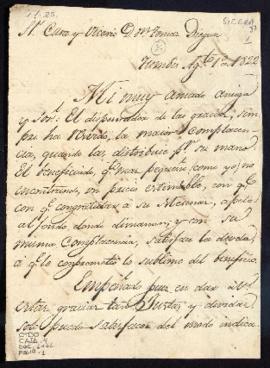 Sr. Cura y Vicario Dn. Tomas Dieguez
Tumbes Agto. 1o. de 1822
Mi muy amado amigo
y Sor. El dispensador de las gracias, siem-
pre ha tenido, la maior complacen-
cia, quando las distribuie pr. su mano.
El beneficiado, qe. mas pequeño (como yo) no
encontrando, un precio estimable, con qe.
con qe. congratular a su Mecenas, apela
al fondo donde dimanan; y con su
misma complacencia, satisface la deuda,
a qe. lo comprometio lo sublime del beneficio.
Empeñado pues en dar a V.
estas gracias tan justas, y devidas
solo puedo satisfacer del modo indica-